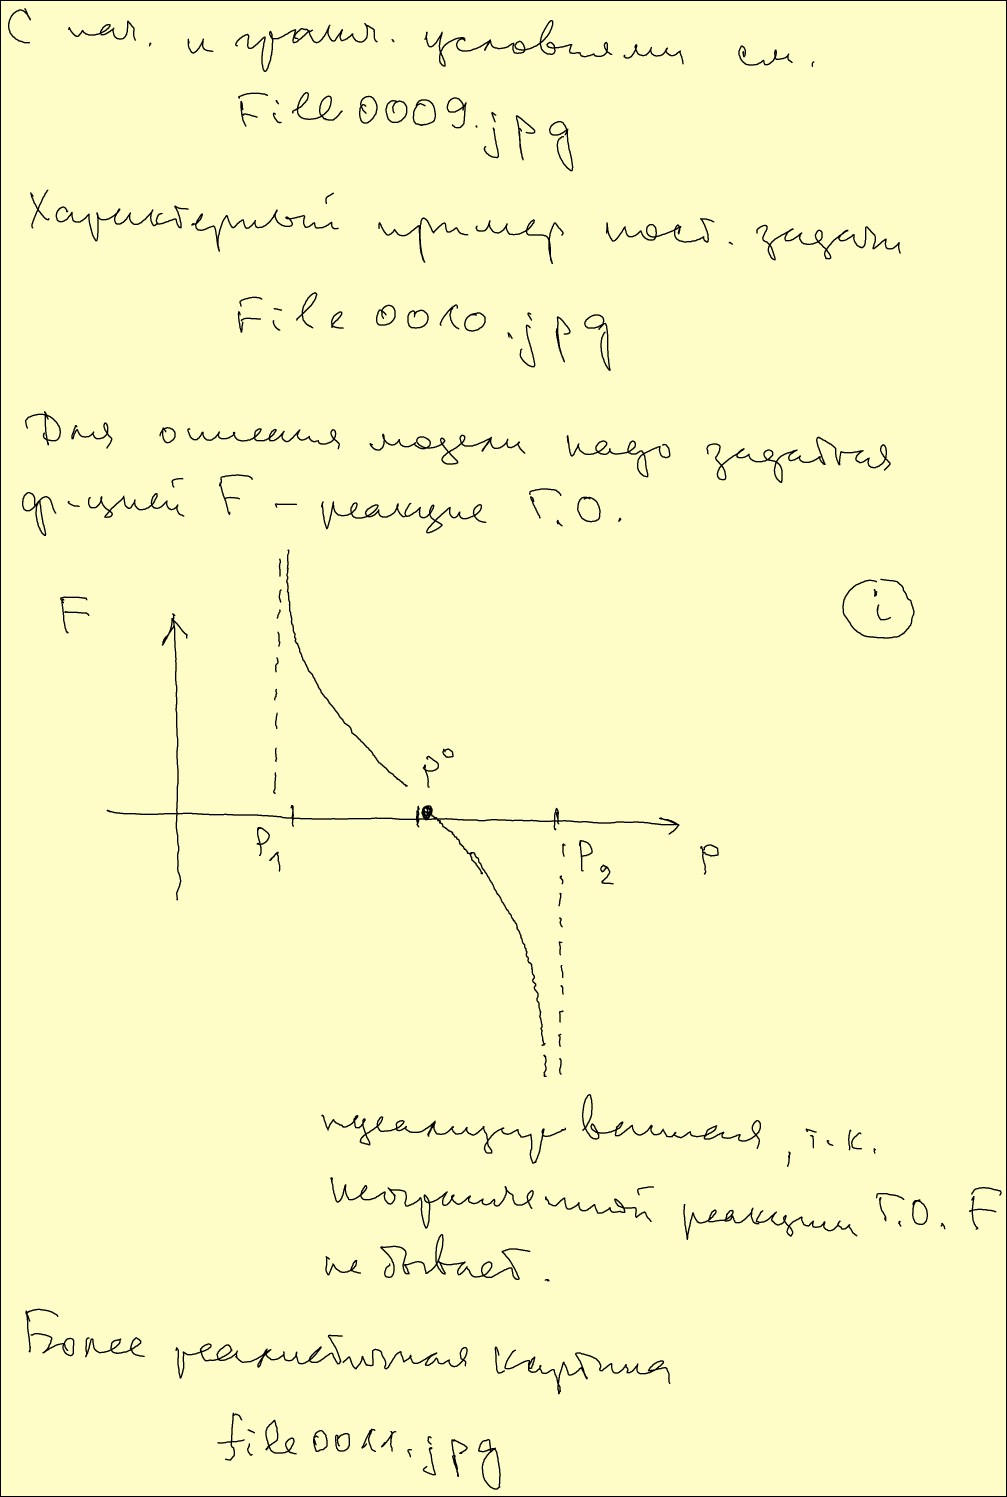 С нач. и гранич. условиями см.
File0009.jpg
Характерный пример пост. задачи
File 0010.jpg
Для описания модели надо задаться
ф-цией F – реакцие Г.О.
F
i
P⁰
P₁
P₂
P
идеализированная, т.к.
неограниченной реакции Г.О. F
не бывает.
Более реалистичная картина
file0011.jpg